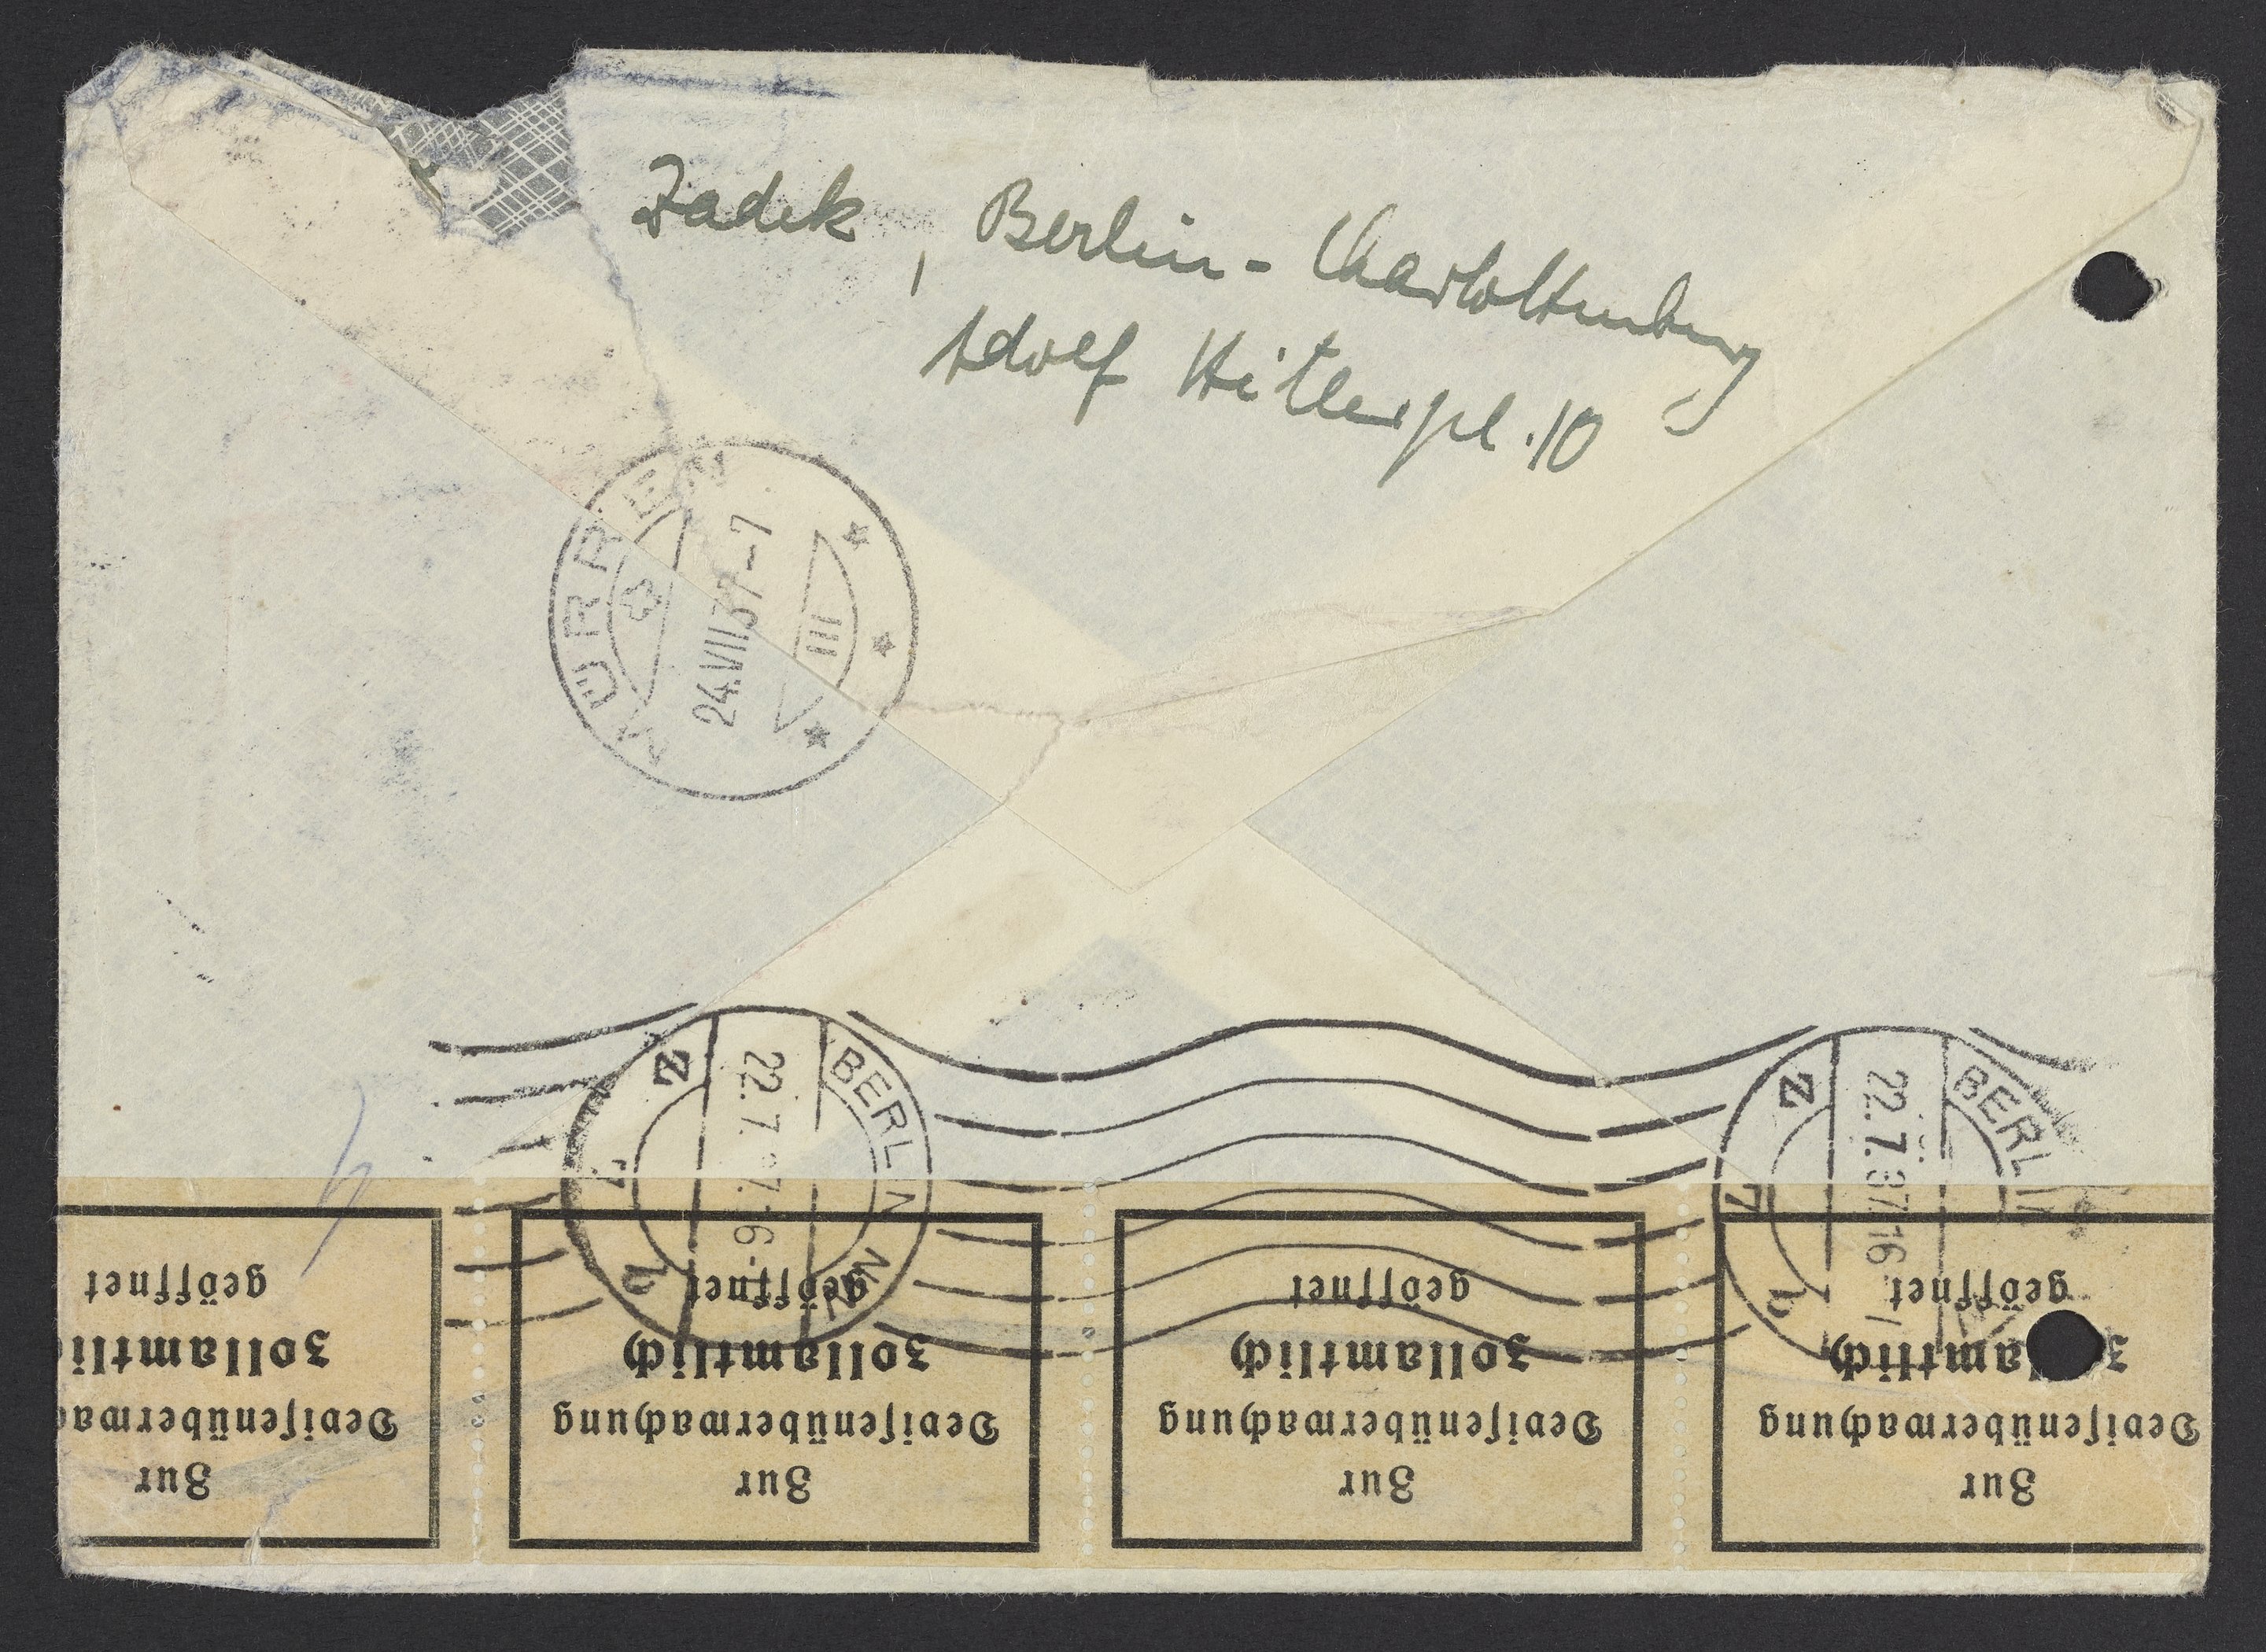 Zadek, Berlin-Charlottenburg
Adolf Hitlerpl. 10
MÜRREN
24.VII.37-7
III
BERLIN
22.7. 7. 6-
N 4
b
BERLIN
22.7.37.16
b
Zur
Devisenüberwa
zollamtli
geöffnet
Zur
Devisenüberwachung
zollamtlich
geöffnet
Zur
Devisenüberwachung
zollamtlich
geöffnet
Zur
Devisenüberwachung
z lamtlich
geöffnet